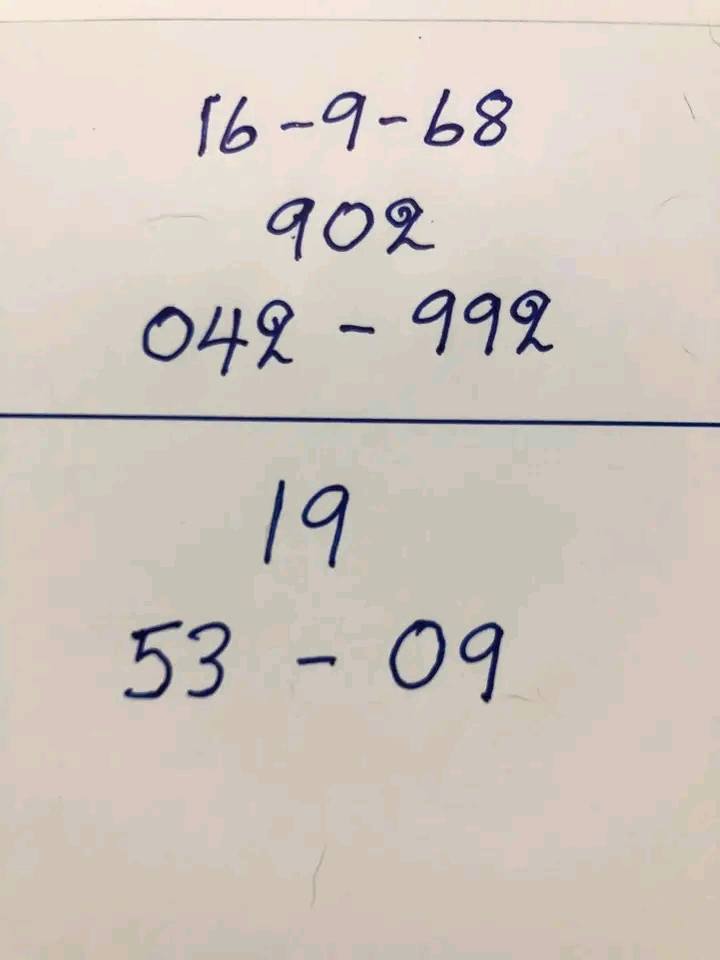 16-9-68
902
042 - 992
19
53 - 09